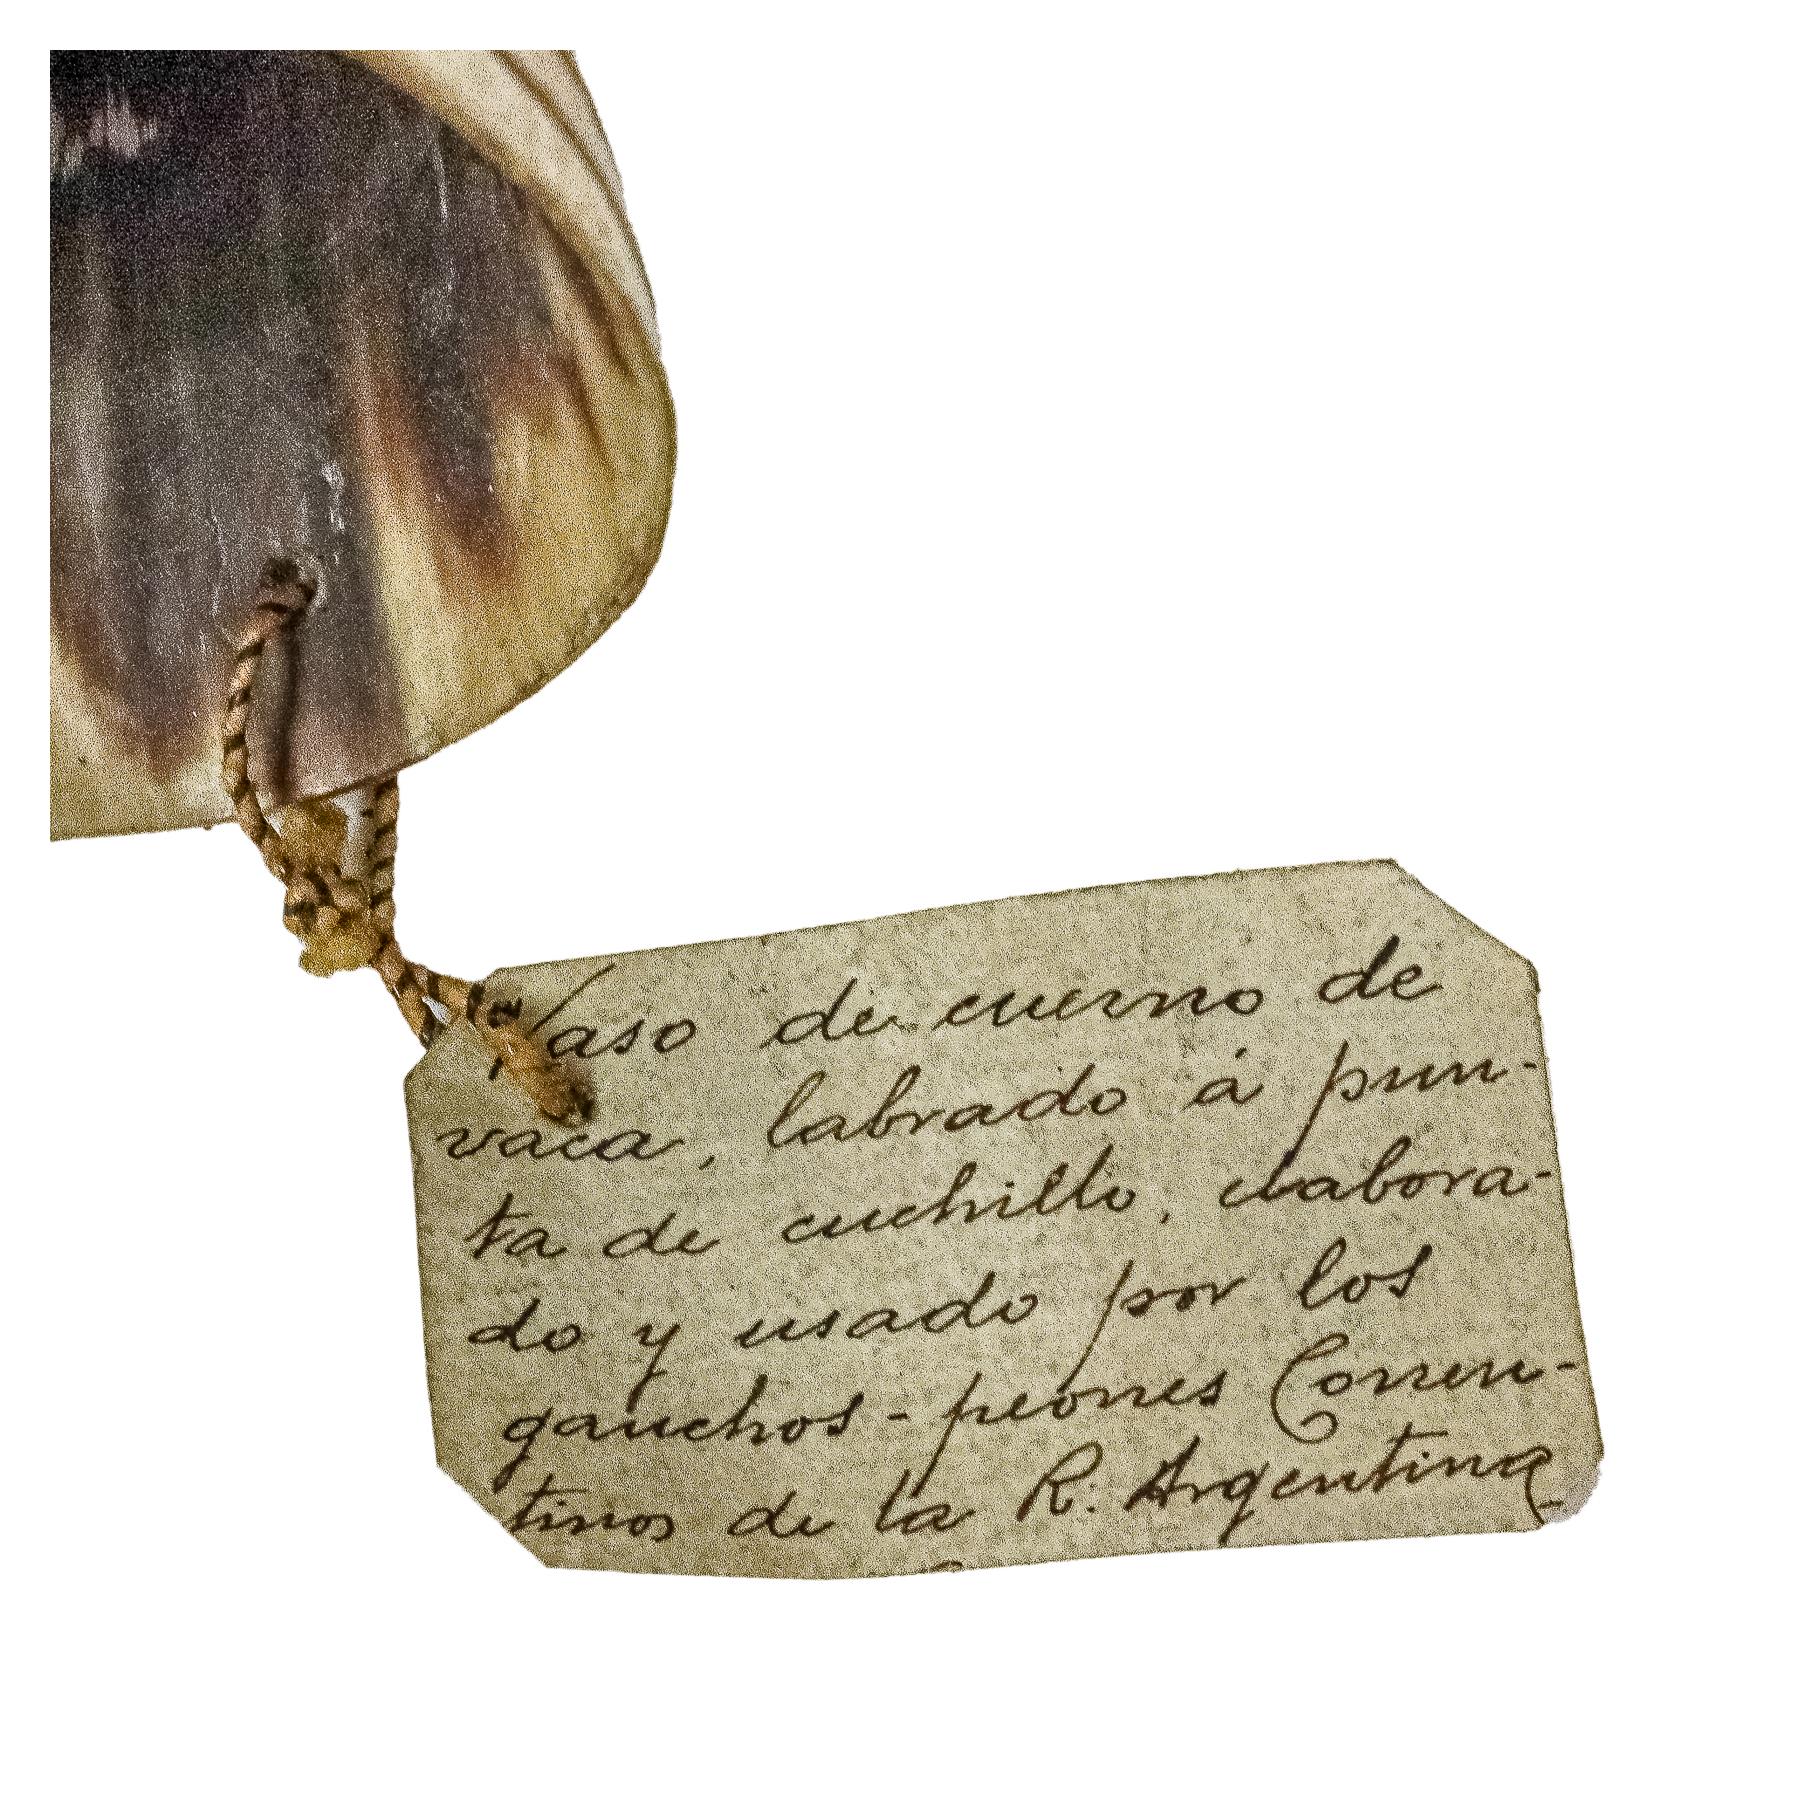 Vaso de cuerno de
vaca, labrado á pun-
ta de cuchillo, elabora-
do y usado por los
gauchos - peones Corren-
tinos de la R. Argentina